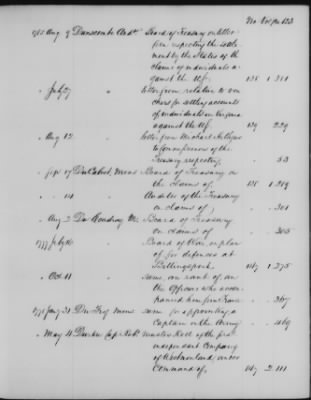 No Vol Pa 123
1785 Aug 9 Dunscomb And^w Board of Treasury on letter
from, respecting the settle-
ment by the States of the
claims of individuals a-
gainst the US. 138 1 281
" July 27 " letter from relative to vou
chers for settling accounts
of individuals in Virginia
against the US. 139 229
" Aug 12 " letter from Michael
to Commissioners of the
Treasury respecting, " 53
" Board of Treasury on
the claims of, 138 1
" " Auditor of the Treasury
on claims of, " 301
" Aug 2 Du Coudray Board of Treasury
on claims of " 305
1777 July " Board of War on plan
of for defences at
Billingsport, 147 1 275
" Oct 11 " same, on rank of, on
the Officers who accom-
panied him from France " 367
1778 Jany 31 same for appointing a
Captain in the Army " 469
" May 4 Capt Rob^t muster Roll of the
independent Company
of Westmoreland, under
Command of, 147 2 111